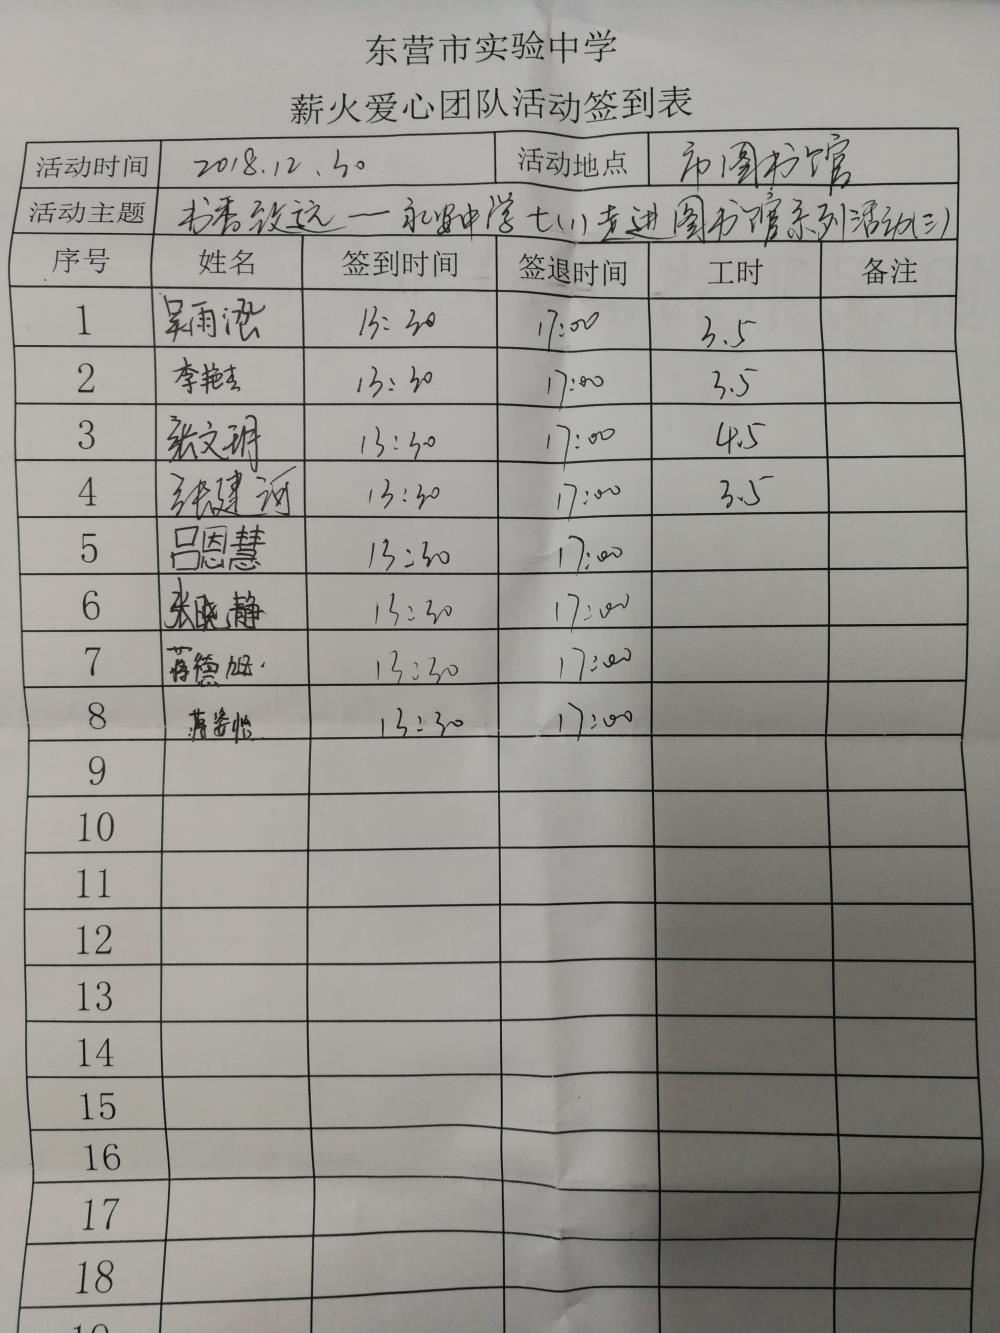 东营市实验中学
薪火爱心团队活动签到表
活动时间 2018.12.30 活动地点 市图书馆
活动主题 书香致远——永安中学七(1)走进图书馆系列活动(三)
序号 姓名 签到时间 签退时间 工时 备注
1 吴雨泓 13:30 17:00 3.5
2 李艳 13:30 17:00 3.5
3 张文玥 13:30 17:00 4.5
4 张建河 13:30 17:00 3.5
5 吕恩慧 13:30 17:00
6 张晓静 13:30 17:00
7 蒋德旭 13:30 17:00
8 蒋姿怡 13:30 17:00
9
10
11
12
13
14
15
16
17
18
19